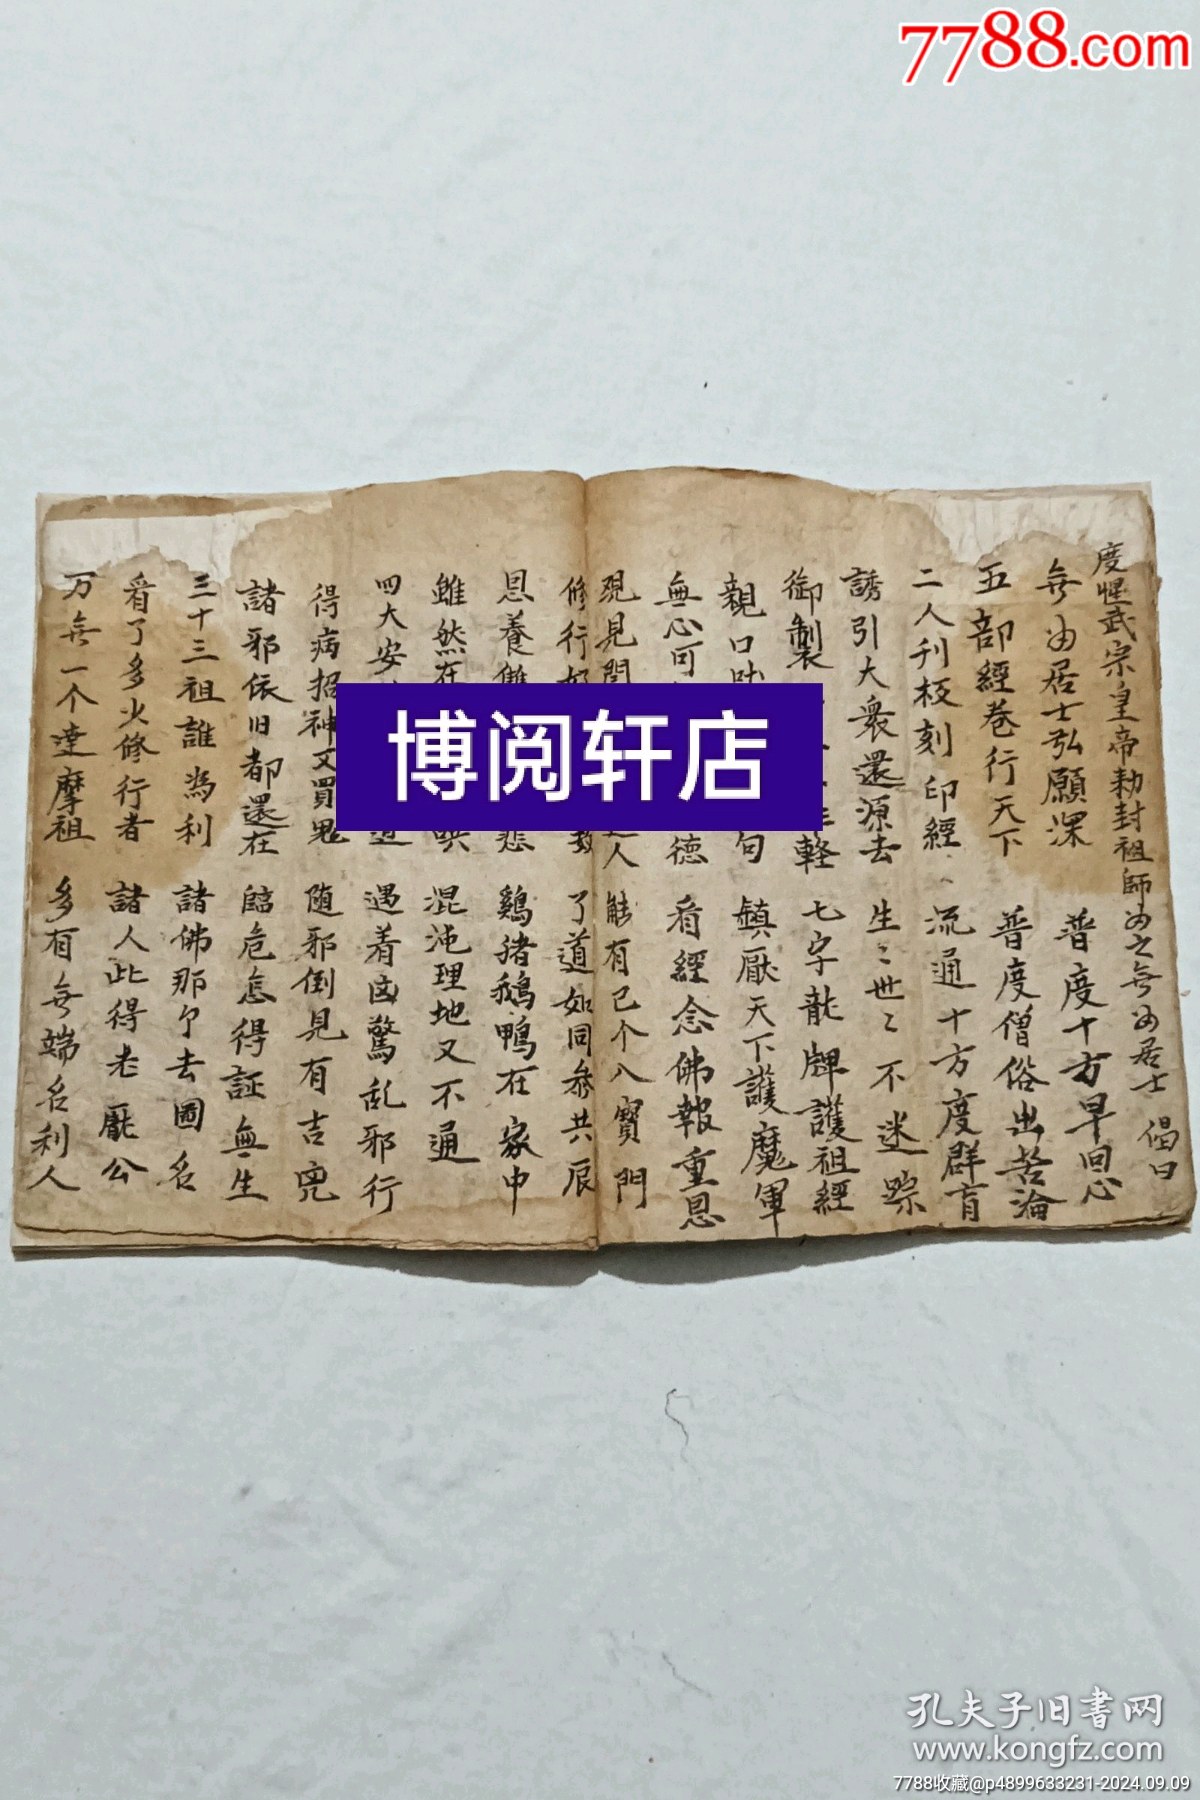 7788.com
度惺武宗皇帝勅封祖師為之無為居士 偈曰
無為居士弘願深 普度十方早回心
五部經卷行天下 普度僧俗出苦淪
二人刊板刻印經 流通十方度群盲
誘引大衆還源去 生〻世〻不迷踪
御製 輕 七字龍牌護祖經
親口吐 句 鎮厭天下護魔軍
無心可 德 看經念佛報重恩
現見 人 能有已个入寶門
修行好 数 了道如同參共辰
恩養雙 悲 鷄猪鵝鴨在家中
雖然在 混沌理地又不通
四大安 道 遇着凶驚乱邪行
得病招神又買鬼 随邪倒見有吉兇
諸邪依旧都還在 臨危怎得証無生
三十三祖誰為利 諸佛那个去圖名
看了多少修行者 諸人此得老龎公
万無一个達摩祖 多有無端名利人
博阅轩店
孔夫子旧书网
www.kongfz.com
7788收藏@p4899633231-2024.09.09